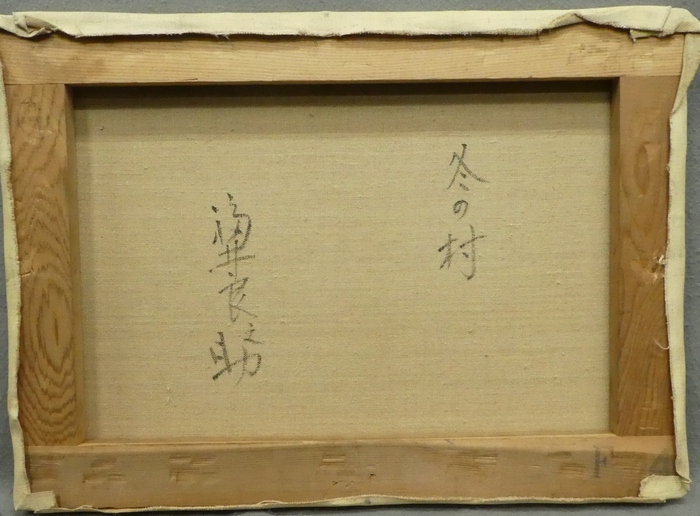 冬の村
福井良之助
F 4